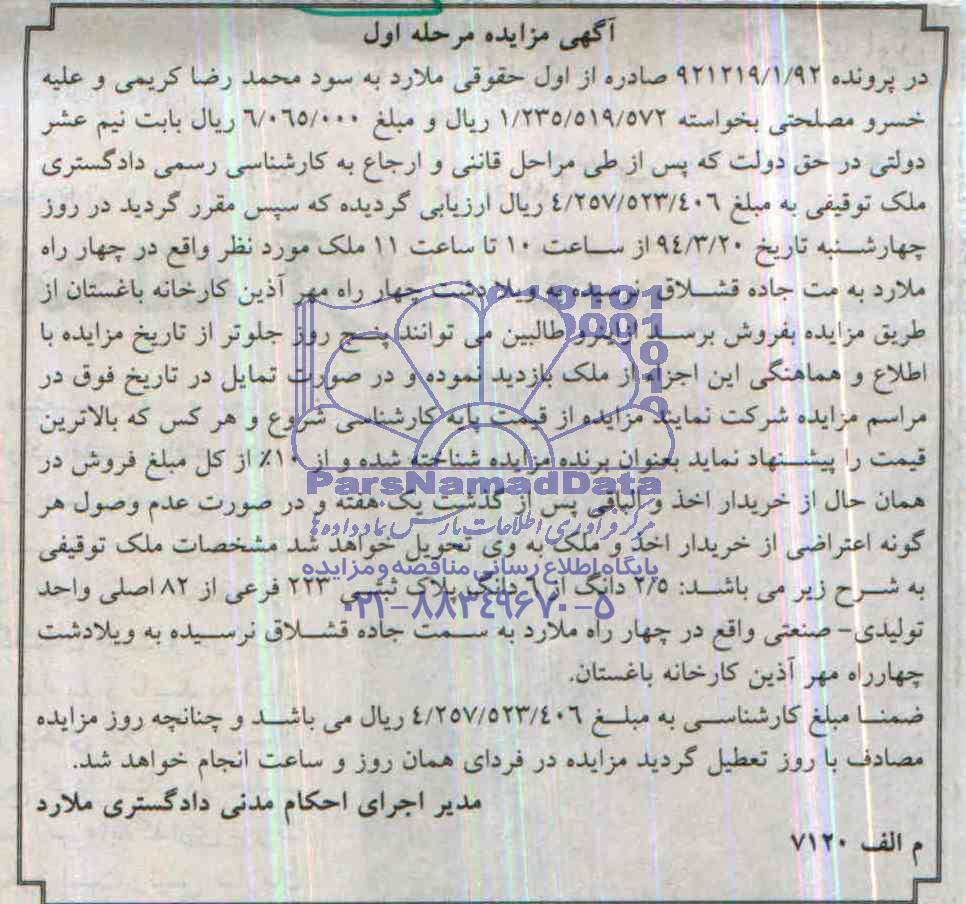 آگهی مزایده مرحله اول
در پرونده ۹۲۱۲۱۹/۱/۹۲ صادره از اول حقوقی ملارد به سود محمد رضا کریمی و علیه
خسرو مصلحتی بخواسته ۱/۲۳۵/۵۱۹/۵۷۲ ریال و مبلغ ۶/۰۶۵/۰۰۰ ریال بابت نیم عشر
دولتی در حق دولت که پس از طی مراحل قاننی و ارجاع به کارشناسی رسمی دادگستری
ملک توقیفی به مبلغ ۴/۲۵۷/۵۲۳/۴۰۶ ریال ارزیابی گردیده که سپس مقرر گردید در روز
چهارشنبه تاریخ ۹۴/۳/۲۰ از ساعت ۱۰ تا ساعت ۱۱ ملک مورد نظر واقع در چهار راه
ملارد به مت جاده قشلاق نرسیده به ویلا دشت چهار راه مهر آذین کارخانه باغستان از
طریق مزایده بفروش برسد ازاینرو طالبین می توانند پنج روز جلوتر از تاریخ مزایده با
اطلاع و هماهنگی این اجرا از ملک بازدید نموده و در صورت تمایل در تاریخ فوق در
مراسم مزایده شرکت نمایند مزایده از قیمت پایه کارشناسی شروع و هر کس که بالاترین
قیمت را پیشنهاد نماید بعنوان برنده مزایده شناخته شده و از ۱۰٪ از کل مبلغ فروش در
همان حال از خریدار اخذ و الباقی پس از گذشت یک هفته و در صورت عدم وصول هر
گونه اعتراضی از خریدار اخذ و ملک به وی تحویل خواهد شد مشخصات ملک توقیفی
به شرح زیر می باشد: ۲/۵ دانگ از ۶ دانگ پلاک ثبتی ۲۲۳ فرعی از ۸۲ اصلی واحد
تولیدی- صنعتی واقع در چهار راه ملارد به سمت جاده قشلاق نرسیده به ویلادشت
چهارراه مهر آذین کارخانه باغستان.
ضمنا مبلغ کارشناسی به مبلغ ۴/۲۵۷/۵۲۳/۴۰۶ ریال می باشد و چنانچه روز مزایده
مصادف با روز تعطیل گردید مزایده در فردای همان روز و ساعت انجام خواهد شد.
مدیر اجرای احکام مدنی دادگستری ملارد
م الف ۷۱۲۰
ParsNamadData
مرکز فرآوری اطلاعات پارس نماد داده ها
پایگاه اطلاع رسانی مناقصه و مزایده
۰۲۱-۸۸۳۴۹۶۷۰-۵